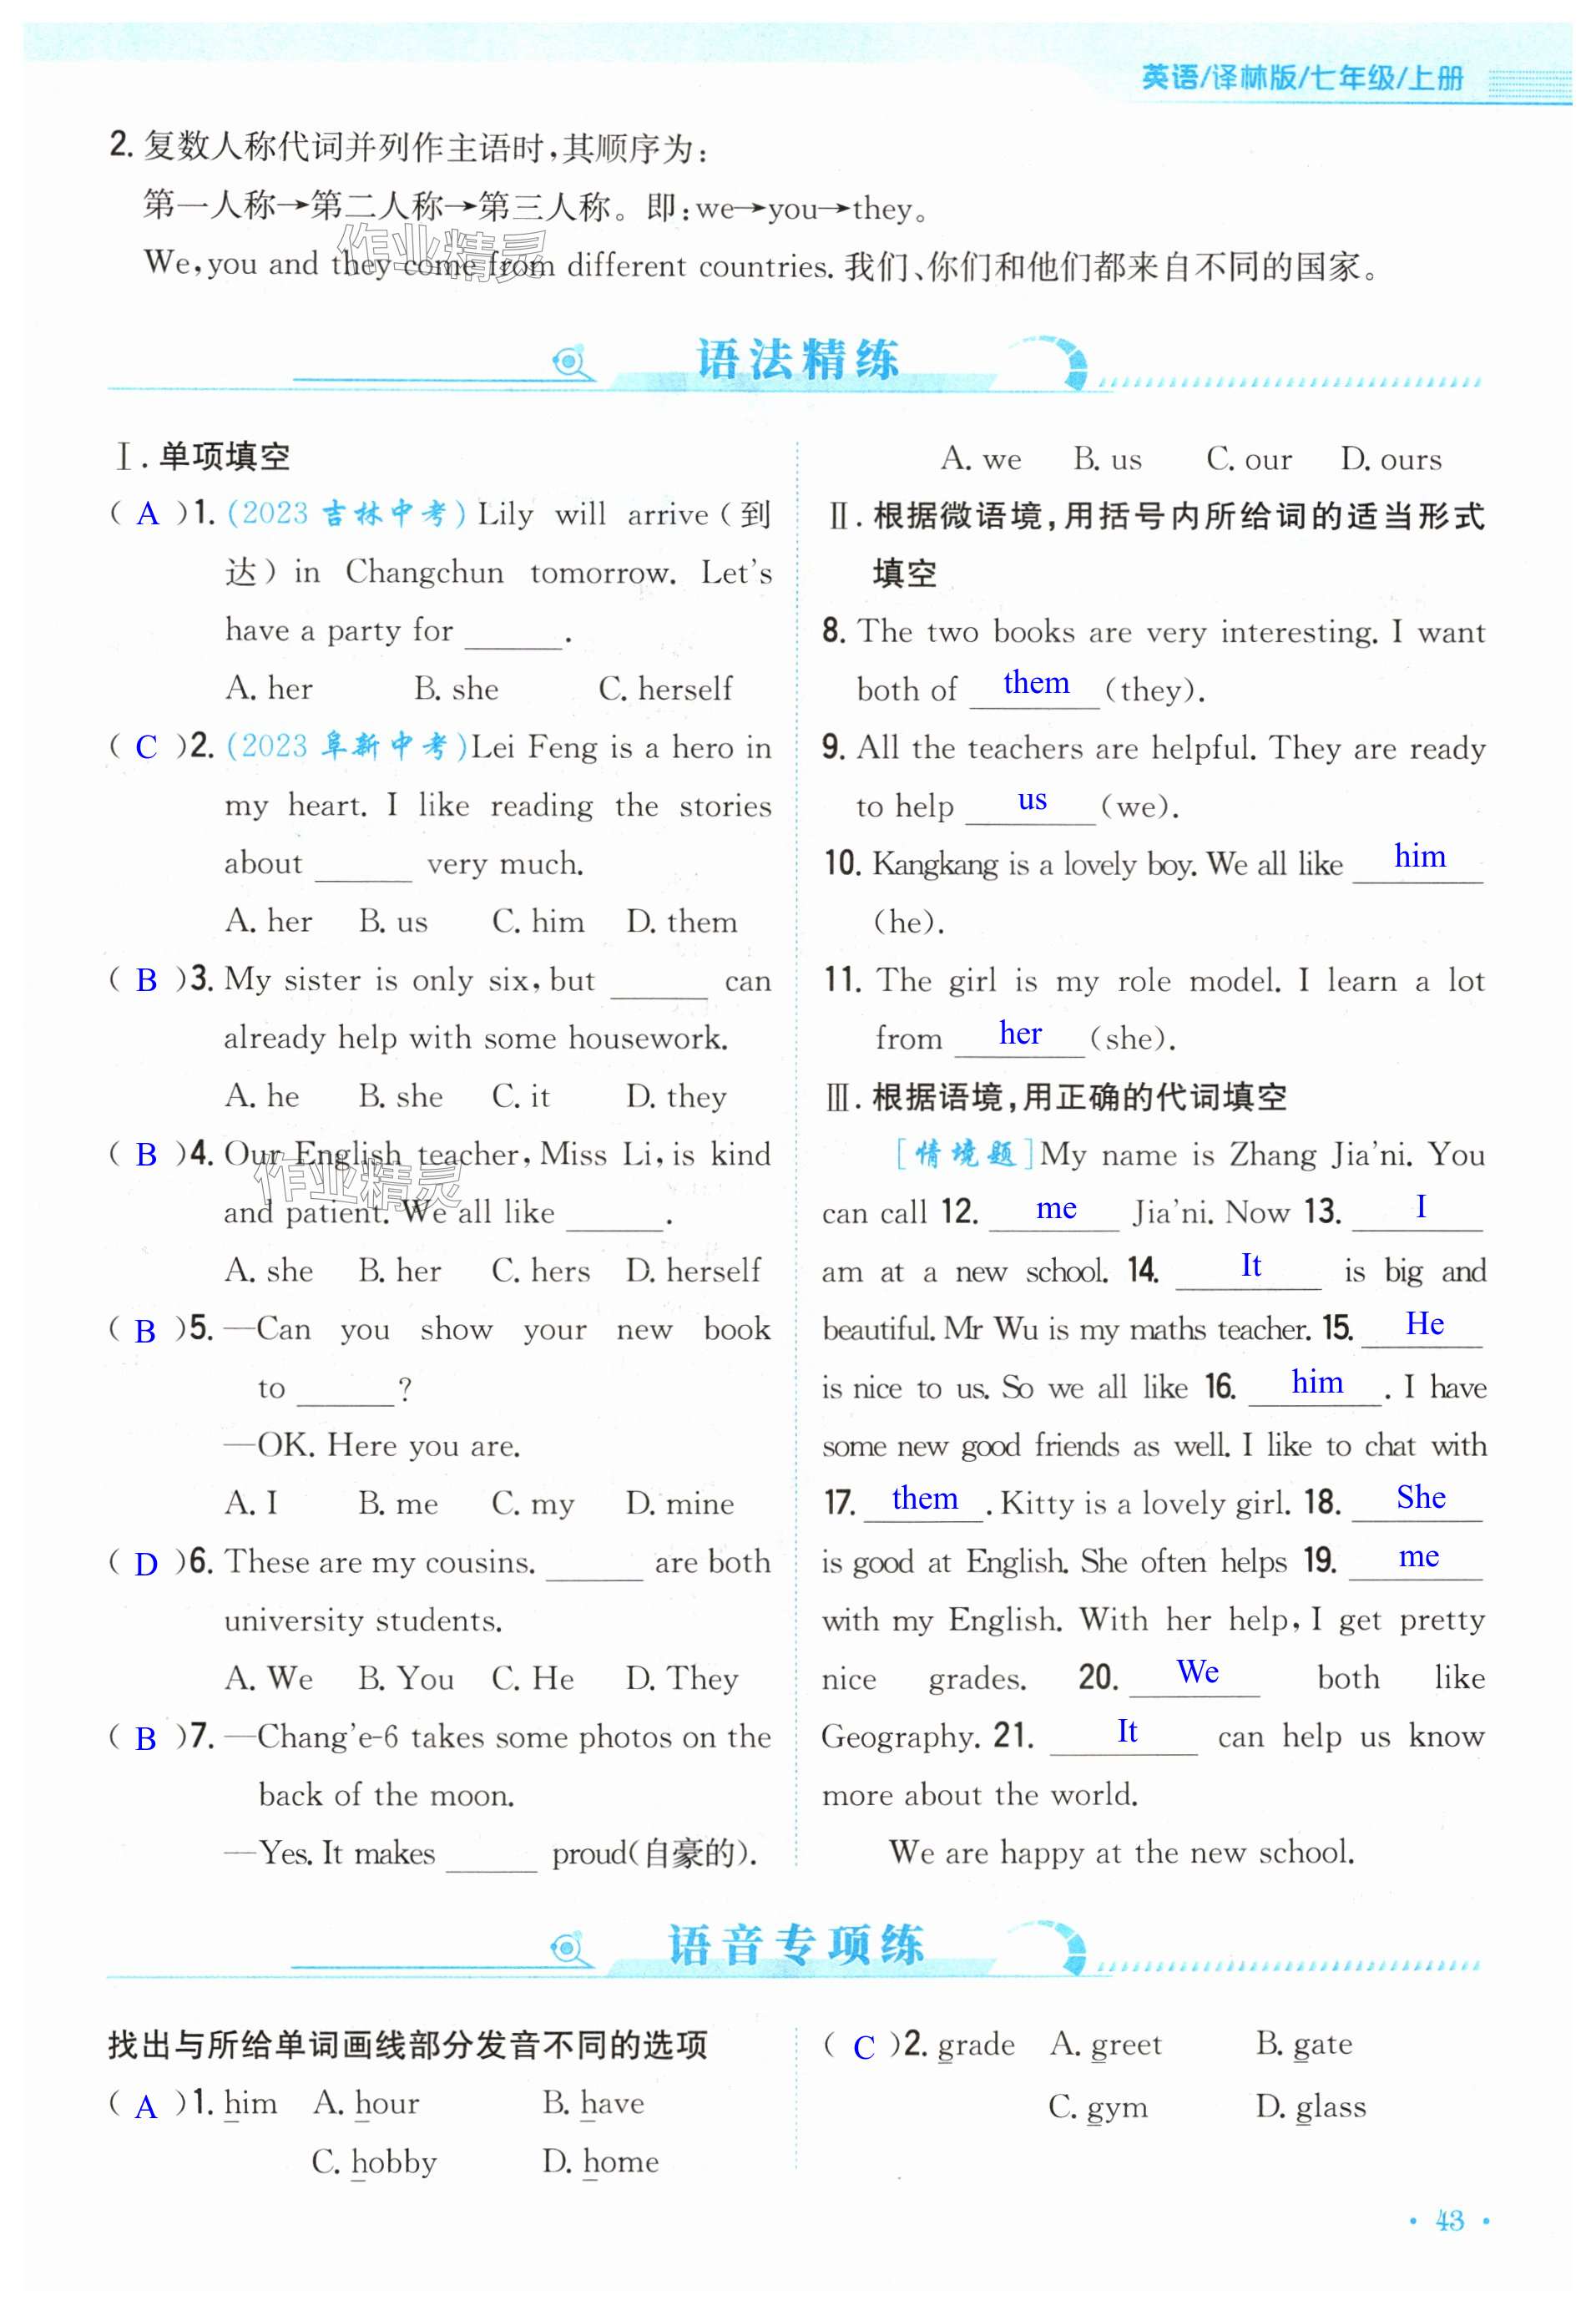 英语/译林版/七年级/上册
2. 复数人称代词并列作主语时,其顺序为:
第一人称→第二人称→第三人称。即:we→you→they。
We, you and they come from different countries. 我们、你们和他们都来自不同的国家。
作业精灵
语法精练
Ⅰ. 单项填空
( A )1. (2023 吉林中考) Lily will arrive (到
达) in Changchun tomorrow. Let's
have a party for ______.
A. her B. she C. herself
( C )2. (2023 阜新中考)Lei Feng is a hero in
my heart. I like reading the stories
about ______ very much.
A. her B. us C. him D. them
( B )3. My sister is only six, but ______ can
already help with some housework.
A. he B. she C. it D. they
( B )4. Our English teacher, Miss Li, is kind
作业精灵
and patient. We all like ______.
A. she B. her C. hers D. herself
( B )5. —Can you show your new book
to ______?
—OK. Here you are.
A. I B. me C. my D. mine
( D )6. These are my cousins. ______ are both
university students.
A. We B. You C. He D. They
( B )7. —Chang'e-6 takes some photos on the
back of the moon.
—Yes. It makes ______ proud(自豪的).
A. we B. us C. our D. ours
Ⅱ. 根据微语境,用括号内所给词的适当形式
填空
8. The two books are very interesting. I want
both of them (they).
9. All the teachers are helpful. They are ready
to help us (we).
10. Kangkang is a lovely boy. We all like him
(he).
11. The girl is my role model. I learn a lot
from her (she).
Ⅲ. 根据语境,用正确的代词填空
[情境题]My name is Zhang Jia'ni. You
can call 12. me Jia'ni. Now 13. I
am at a new school. 14. It is big and
beautiful. Mr Wu is my maths teacher. 15. He
is nice to us. So we all like 16. him . I have
some new good friends as well. I like to chat with
17. them . Kitty is a lovely girl. 18. She
is good at English. She often helps 19. me
with my English. With her help, I get pretty
nice grades. 20. We both like
Geography. 21. It can help us know
more about the world.
We are happy at the new school.
语音专项练
找出与所给单词画线部分发音不同的选项
( A )1. him A. hour B. have
C. hobby D. home
( C )2. grade A. greet B. gate
C. gym D. glass
• 43 •